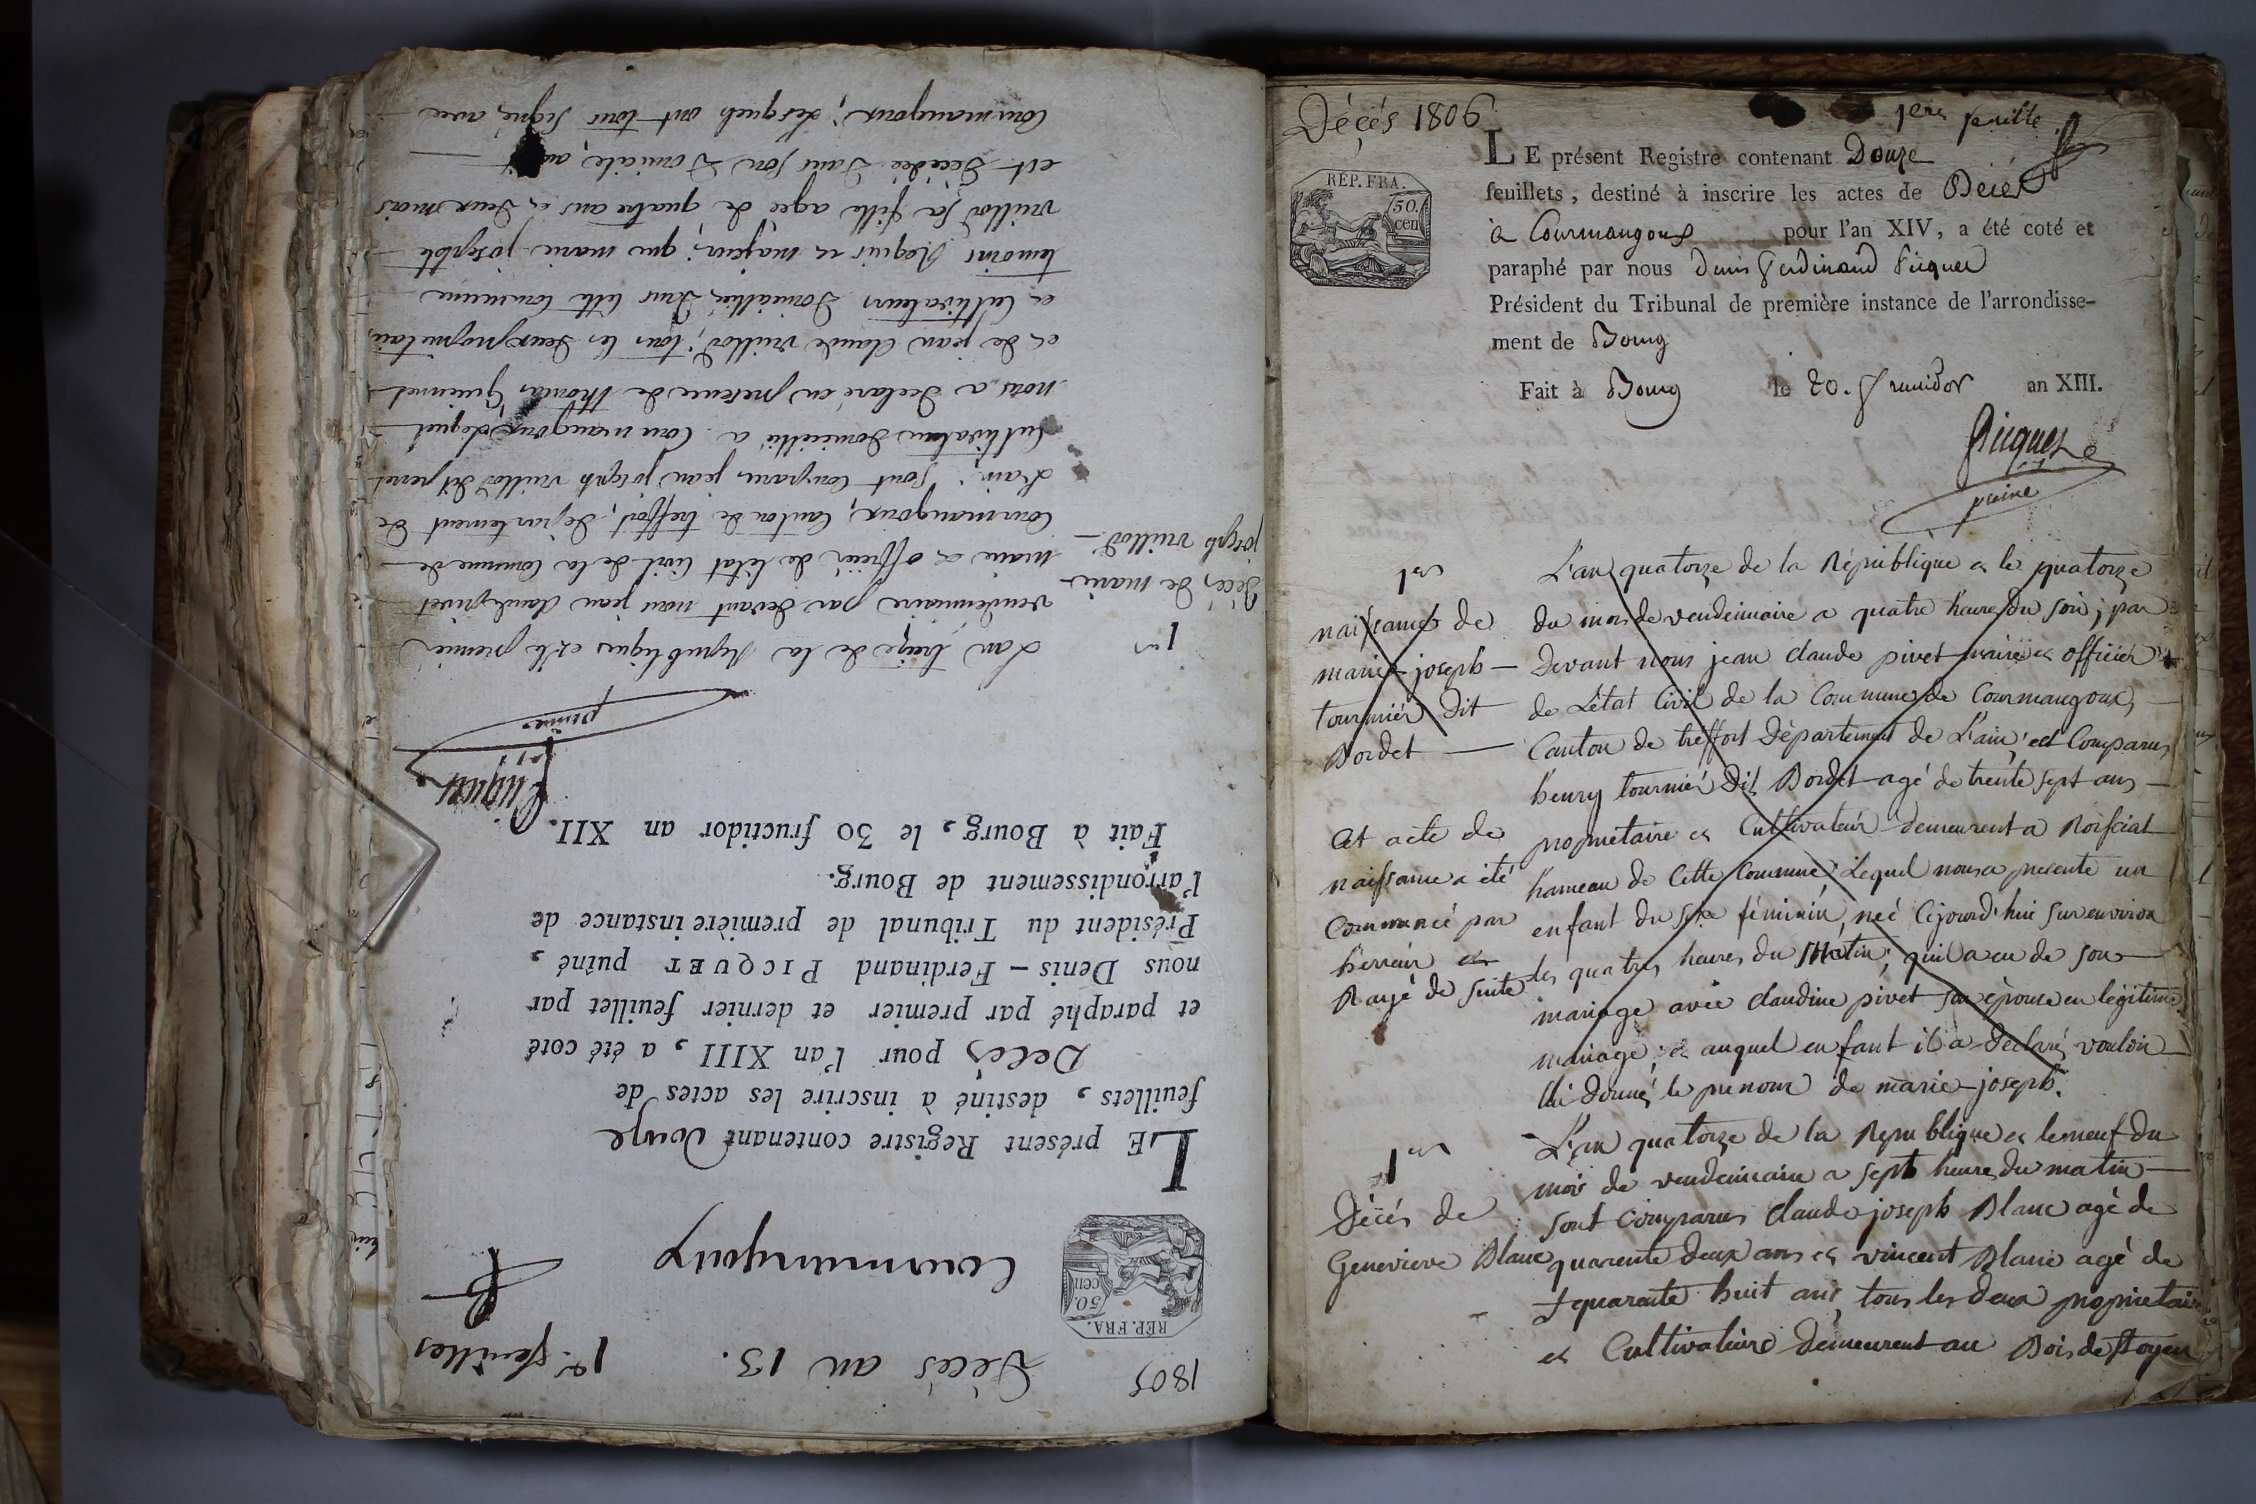 1805
Décés an 13. 1er feuilles
RÉP. FRA.
50.
cen
Courmangoux
LE présent Registre contenant Douze
feuillets, destiné à inscrire les actes de
Décès pour l'an XIII, a été coté
et paraphé par premier et dernier feuillet par
nous Denis-Ferdinand PICQUET puîné,
Président du Tribunal de première instance de
l'arrondissement de Bourg.
Fait à Bourg, le 30 fructidor an XII.
Picquet
puiné
1er
Décés de marie
joseph vuillod
L'an treize de la Republique et le premier
vendemiaire par devant nous jean claude pivet
maire et officier de l'état Civil de la Commune de
Courmangoux, Canton de treffort, departement de
L'ain; sont Comparu jean joseph vuillod dit perret
Cultivateur domicillié a Courmangoux lequel
nous a declaré en presence de thomas Guiennet
et de jean claude vuillod, tous les deux proprietaire
et Cultivateurs domicillié dans cette Commune
temoins Requis et majeur; que marie josephte
vuillod sa fille agee de quatre ans et deux mois
est décédée dans son Domicile, au
Courmangoux; Lesquels ont tous signé, avec
Décés 1806
1ere feuille
RÉP. FRA.
50.
cen
LE présent Registre contenant Douze
feuillets, destiné à inscrire les actes de Décès
a Courmangoux pour l'an XIV, a été coté et
paraphé par nous Denis Ferdinand Picquet
Président du Tribunal de première instance de l'arrondisse-
ment de Bourg
Fait à Bourg le 20. fructidor an XIII.
Picquet
puiné
1er
naissance de
marie joseph
tournier dit
Bordet
Cet acte de
naissance a été
Commencé par
herreur et
Rayé de suite
L'an quatorze de la République et le quatorze
du mois de vendemiaire a quatre heure du soir; par
Devant nous jean claude pivet maire et officier
de L'état Civil de la Commune de Courmangoux,
Canton de treffort Département de L'ain; est Comparu,
henry tournier Dit Bordet agé de trente sept ans
proprietaire et Cultivateur demeurent a Roissiat
hameau de Cette Commune; Lequel nous a presenté un
enfant du sexe féminin, neé Cejourd'hui sur environ
les quatres heures du Matin; quil a eu de son
mariage avec claudine pivet sa épouse en legitime
mariage; et auquel enfant il a déclaré vouloir
lui donné le prenom de marie-joseph.
1er
Décés de
Genevieve Blanc
L'an quatorze de la Republique et le neuf du
mois de vendemiaire a sept heure du matin
sont comparus claude joseph Blanc agé de
quarente deux ans et vincent Blanc agé de
quarente huit ans, tous les deux proprietaire
et Cultivateurs demeurent au Bois de